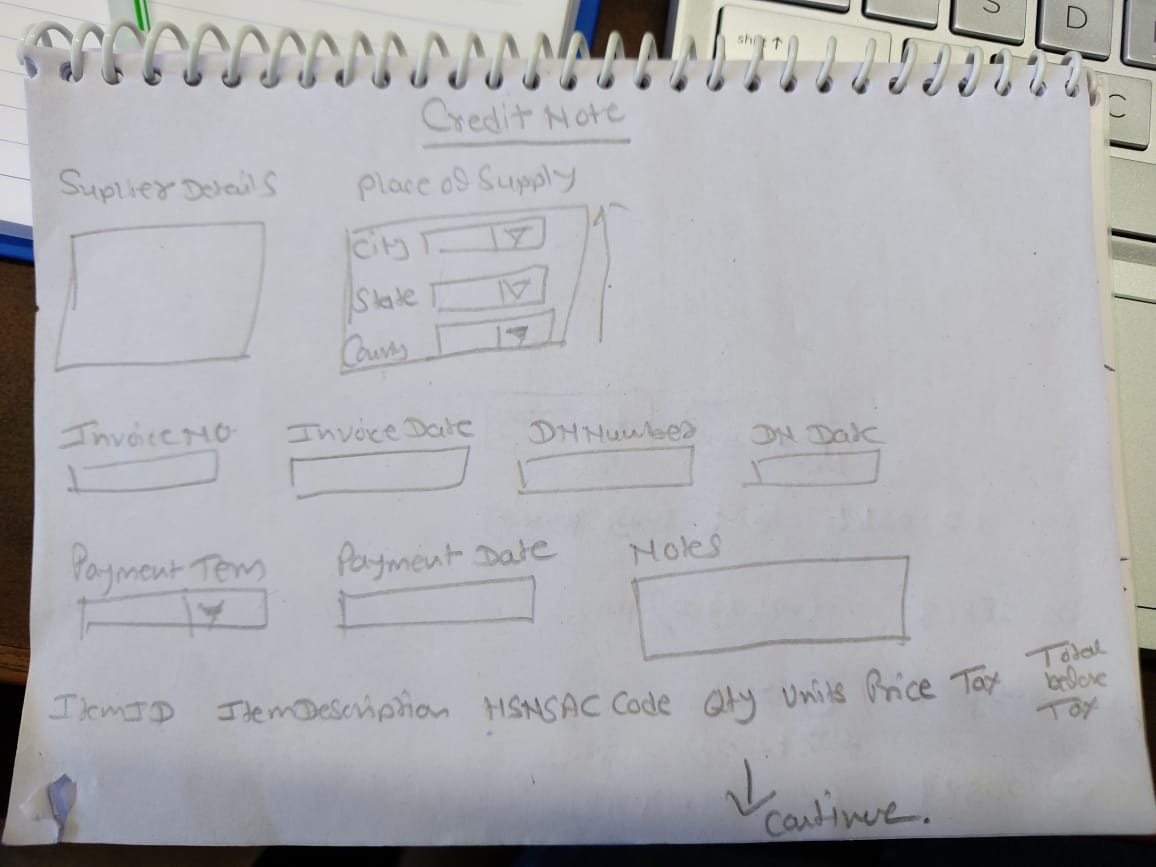 Credit Note
Suplier Details Place of Supply
City
State
Invoice NO Invoice Date DN Number DN Date
Payment Term Payment Date Notes
ItemID Item Description HSNSAC Code Qty Units Price Tax Total before Tax
Continue.
shift ↑
S
D
C